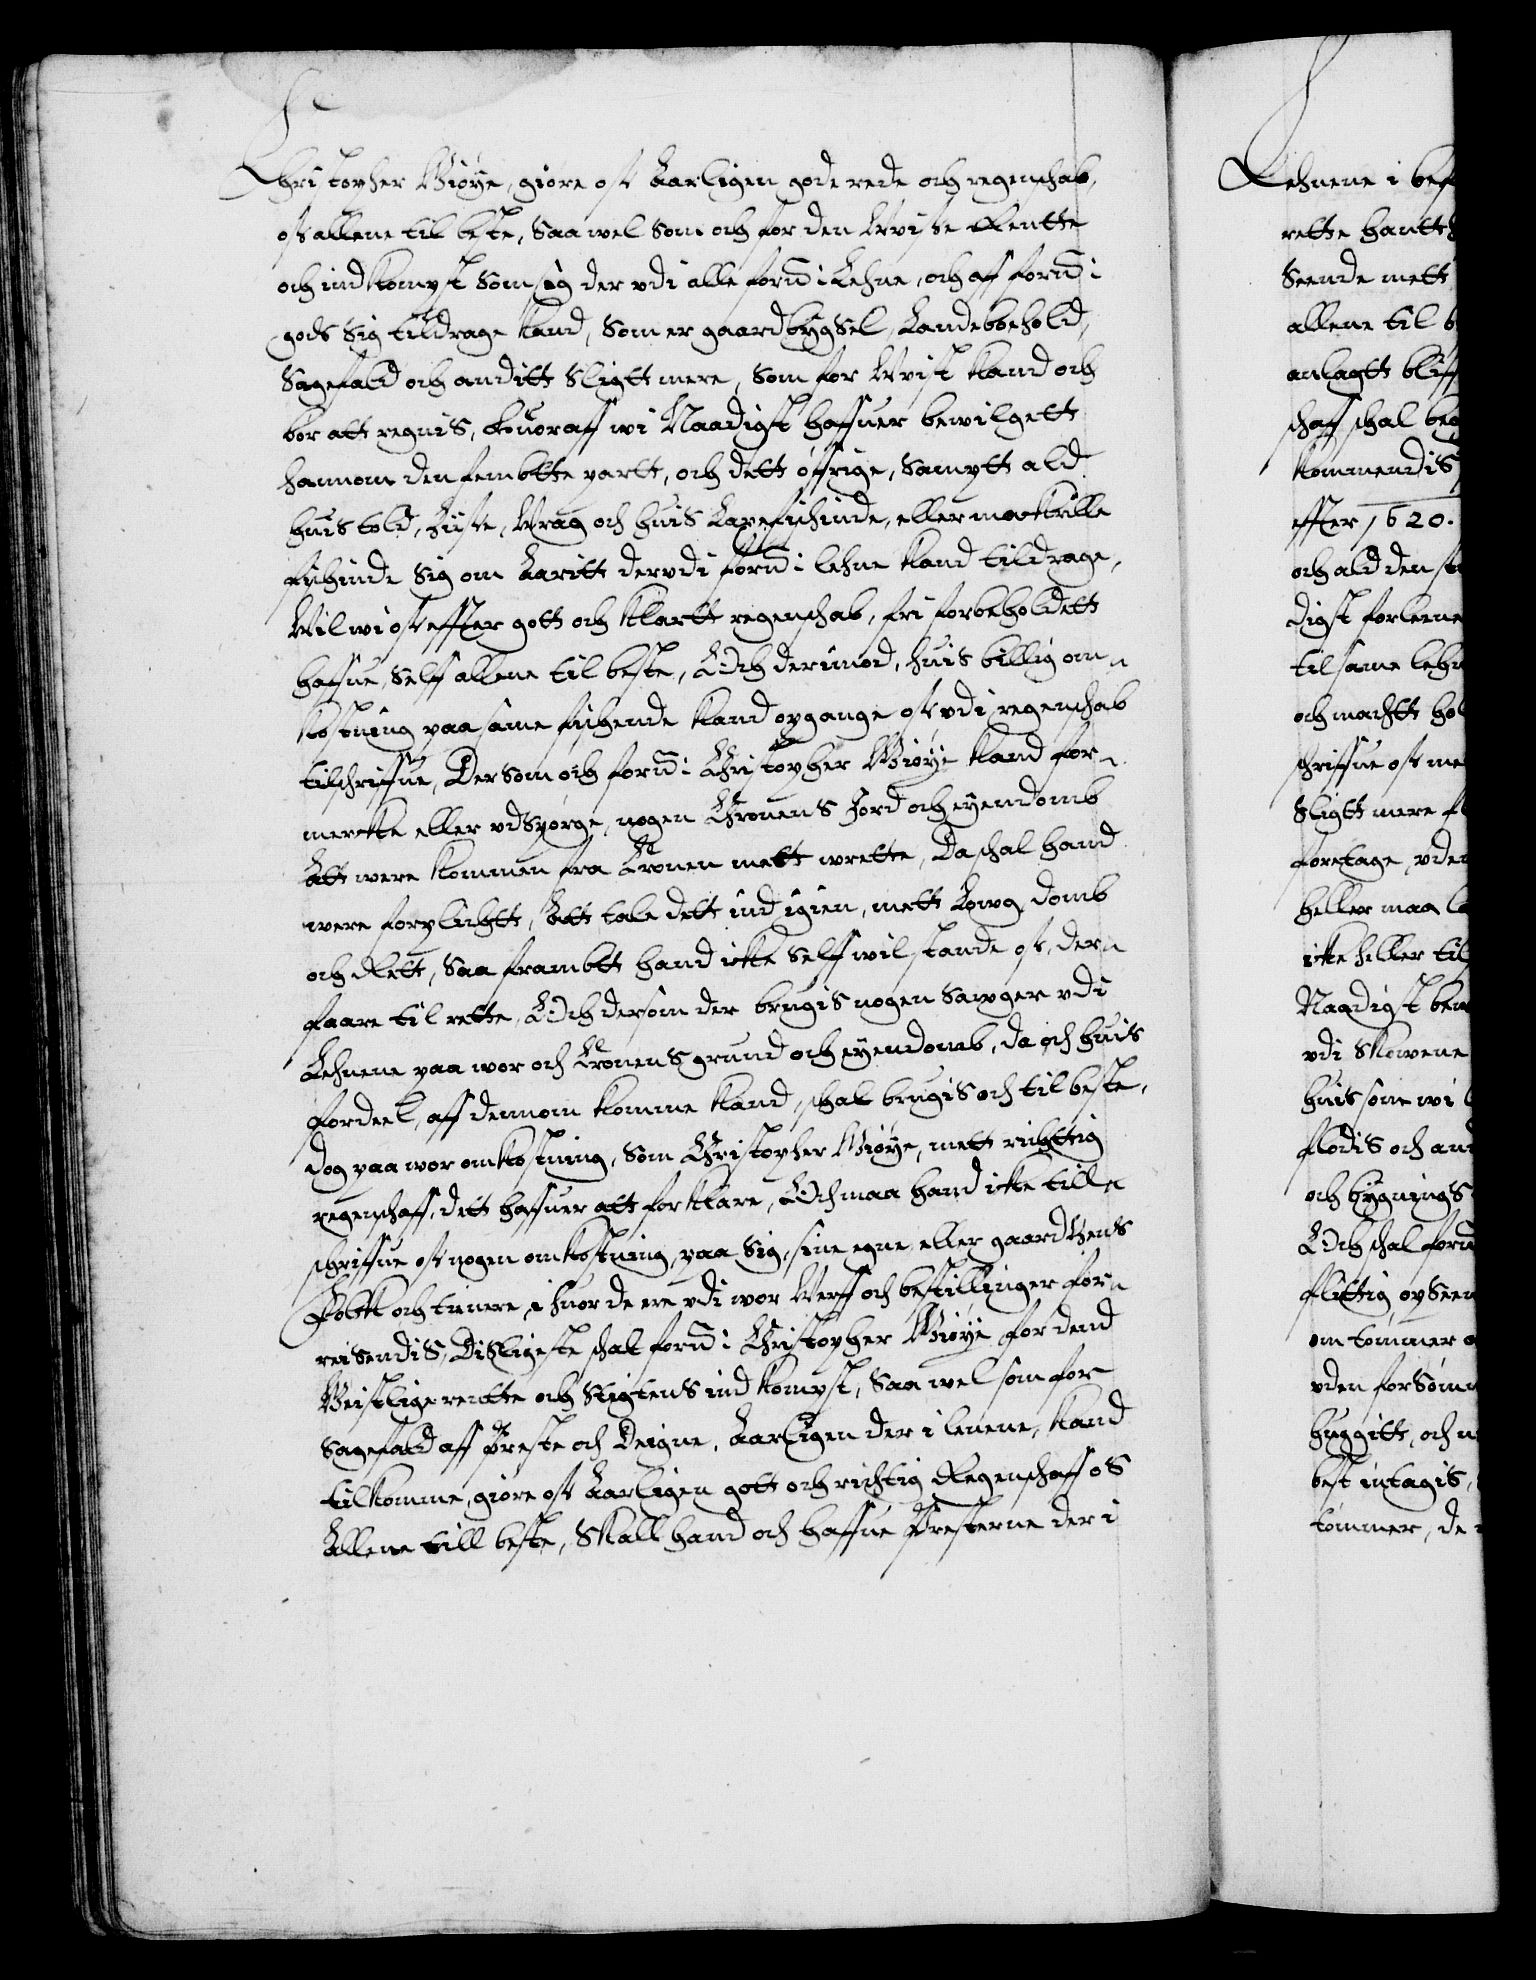 Christopher Giøye, giøre oss Aarligen gode rede och regenschab,
oss allene til beste, Saa wel som och for den Wvisse Rentte
och indkompst som sig der vdi alle fornd i Lehne, och aff fornd i
gods Sig tildrage kand, Som er gaardbygsel, Landeboehold,
Sagefald och anditt Sligtt mere, Som for Wvist kand och
bør att regnis, Huoraff wi Naadigst haffuer bewilgett
hannom den fembtte partt, och dett øffrige, Sampt ald
huis told, Zise, Wrag och huis Laxefischinde, eller
fischinde Sig om Aaritt dervdi fornd i lehne kand tildrage,
Wil wi oss effter gott och klartt regenschab, fri forbeholdett
haffue, Selff allene til beste, Och derimod, huis billig om-
kostning paa same fischende kand opgange oss vdi regenschab
tilschriffue, Dersom och fornd i Christopher Giøye kand for-
mercke eller vdspørge, nogen Cronens Jord och eyendomb
Att were kommen fra Cronen mett wrette, Da schal hand
were forplichtt, Att tale dett ind igien, mett Lowg, domb
och Rett, Saa frambtt hand icke Selff wil stande oss, der-
faare til rette, Och dersom der brugis nogen Sawger vdi
Lehnene paa wor och Cronens grund och eyendomb, da och huis
fordeel, aff dennom komme kand, schal brugis oss til beste,
dog paa wor omkostning, Som Christopher Giøye, mett richttig
regenschaff, dett haffuer att forklare, Och maa hand icke till-
schriffue oss nogen omkostning, paa Sig, sine egne eller gaardsens
Folck och tienere, i huor de ere vdi wor Werff och bestillinger for-
reisendis, Disligeste schal fornd i Christopher Giøye for dend
Geistlige rentte och Stigtens indkompst, Saa wel som for
Sagefald aff Preste och Deigne, Aarligen der i lenene, kand
tilkomme, giøre oss Aarligen gott och richtig Regenschaff os
Allene till beste, Skall hand och haffue Presterne der i
Lehnene i bef
rette hantth
Seende mett
allene til b
anlagtt bliff
schaff schal beg
kommendis
effter 1620.
och ald den st
digst forlene
til same lehn
och machtt hol
schriffue oss me
Sligtt mere f
foretage, vden
heller maa la
icke heller til
Naadigst bew
vdi Skowene
huis som wi
flødis och and
och bygnings
Och schal fornd
flittig opSeen
om tømmer o
vden forsøm
huggitt, och n
best intagis,
tømmer, de